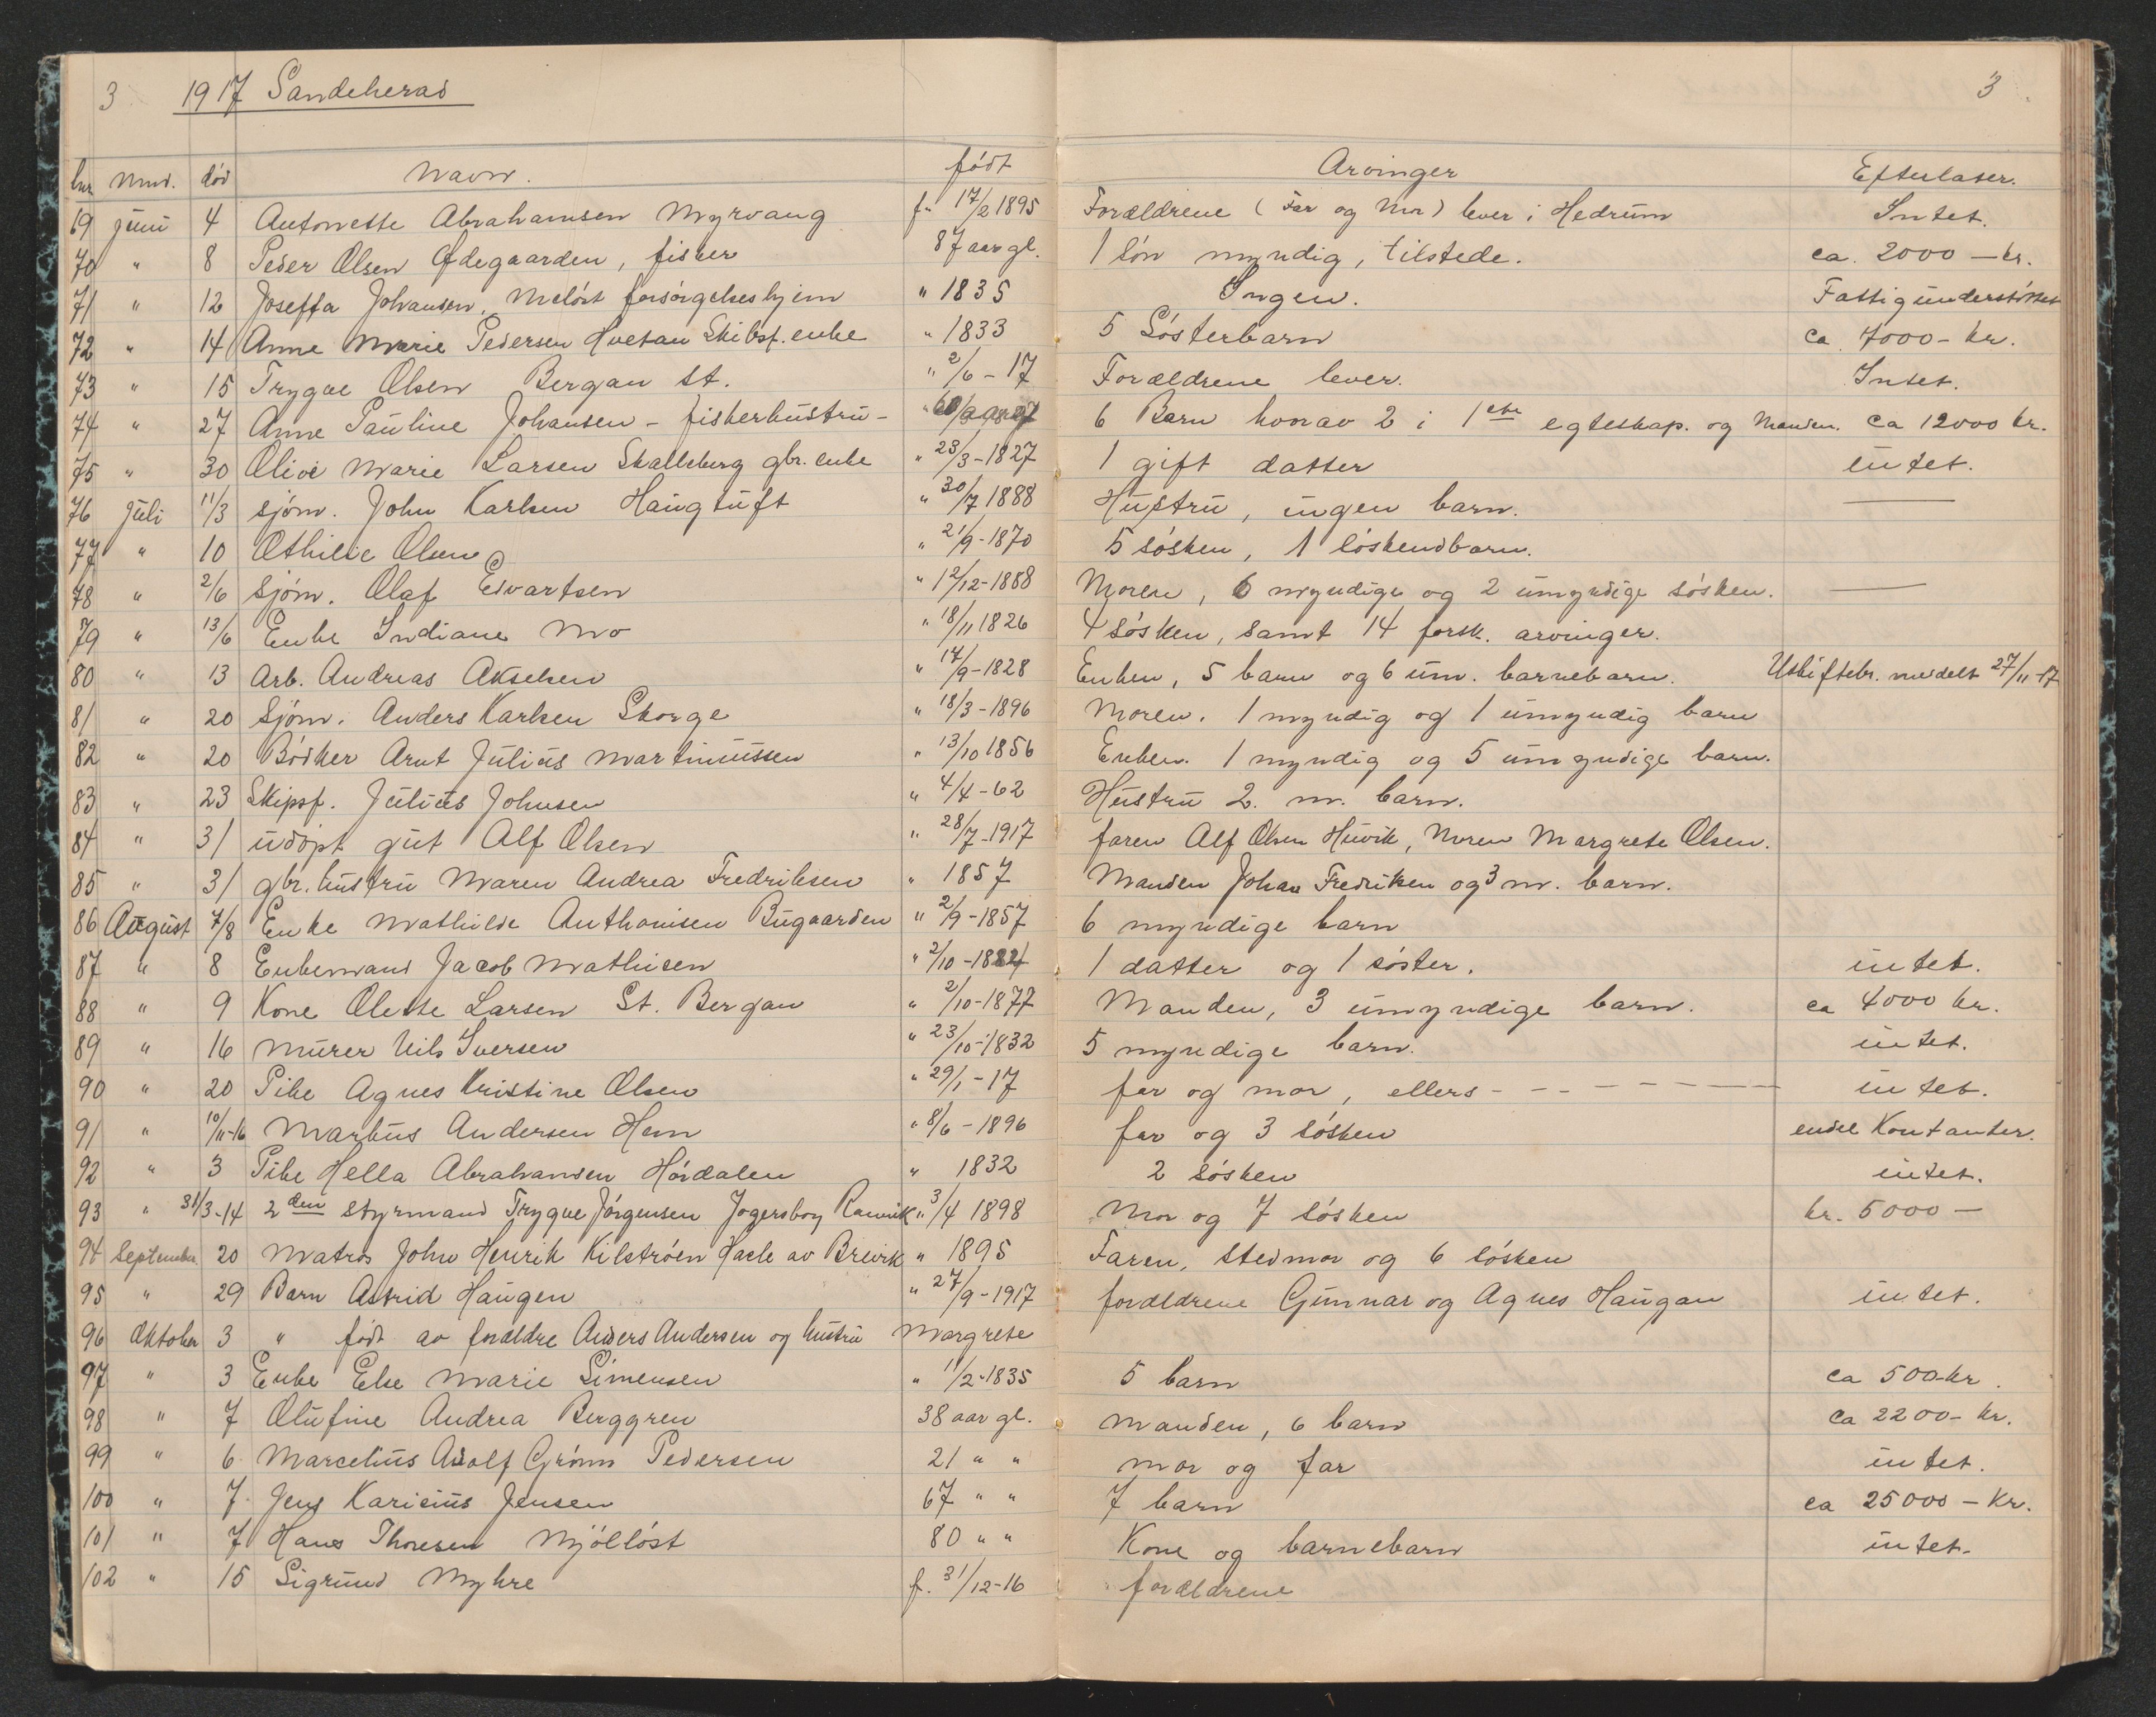 3 1917 Sandeherad 3
Lnr. Mnd. död Navn. født Arvinger Efterlater.
69 juni 4 Antonette Abrahamsen Myrvang f. 17/2 1895 Forældrene (Far og Mor) lever i Hedrum Intet.
70 " 8 Peder Olsen Ødegaarden, fisker 87 aar gl. 1 sön myndig, tilstede. ca. 2000 – kr.
71 " 12 Joseffa Johansen, Melöst forsörgelseshjem " 1835 Ingen. Fattigunderstöttet
72 " 14 Anne Marie Pedersen Hvetan Skibsf. enke " 1833 5 Sösterbarn ca. 7000 – kr.
73 " 15 Trygve Olsen Bergan st. " 2/6 – 17 Forældrene lever. Intet.
74 " 27 Anne Pauline Johansen – fiskerhustru – " 6 Barn hvorav 2 i 1ste egteskap. og Manden. ca 12000 kr.
75 " 30 Olive Marie Larsen Skalleberg gbr. enke " 23/3 – 1827 1 gift datter intet.
76 Juli 11/3 sjöm. John Karlsen Haugtuft " 30/7 1888 Hustru, ingen barn. —
77 " 10 Othilie Olsen " 21/9 – 1870 5 søsken, 1 söskendbarn.
78 " 2/6 sjöm. Olaf Edvartsen " 12/12 – 1888 Moren, 6 myndige og 2 umyndige søsken. —
79 " 13/6 Enke Indiane Mo " 18/11 1826 4 søsken, samt 14 forsk. arvinger.
80 " 13 Arb. Andreas Akselsen " 17/9 – 1828 Enken, 5 barn og 6 um. barnebarn. Uskiftebr. meddelt 27/11 – 17
81 " 20 Sjöm. Anders Karlsen Skorge " 18/3 – 1896 Moren. 1 myndig og 1 umyndig barn
82 " 20 Bödker Arnt Julius Martinussen " 13/10 1856 Enken. 1 myndig og 5 umyndige barn.
83 " 23 Skipsf. Julius Johnsen " 4/4 – 62 Hustru 2. m. barn.
84 " 31 udöpt gut Alf Olsen " 28/7 – 1917 faren Alf Olsen Huvik, Moren Margrete Olsen.
85 " 31 gbr. hustru Maren Andrea Fredriksen " 1857 Manden Johan Fredriksen og 3 m. barn.
86 August 7/8 Enke Mathilde Anthonisen Bugaarden " 2/9 – 1857 6 myndige barn
87 " 8 Enkemand Jacob Mathisen " 2/10 – 1824 1 datter og 1 söster. intet.
88 " 9 Kone Olette Larsen St. Bergan " 2/10 – 1877 Manden, 3 umyndige barn. ca 4000 kr.
89 " 16 Murer Nils Iversen " 23/10 – 1832 5 myndige barn. intet.
90 " 20 Pike Agnes Kristine Olsen " 29/1 – 17 far og mor, ellers – – – – – – – intet.
91 " 10/11-16 Markus Andersen Hem " 8/6 – 1896 far og 3 søsken endel Kontanter.
92 " 3 Pike Hella Abrahamsen Hördalen " 1832 2 søsken intet.
93 " 31/3-14 2den styrmand Trygve Jörgensen Jogersboy Ranvik " 3/4 1898 Mor og 7 søsken kr. 5000 –
94 September 20 Matros John Henrik Kilströen Hasle av Brevik " 1895 Faren, stedmor og 6 søsken
95 " 29 Barn Astrid Haugen " 27/9 – 1917 forældrene Gunnar og Agnes Haugan intet.
96 Oktober 3 " födt av forældre Anders Andersen og hustru Margrete
97 " 3 Enke Else Marie Simensen " 11/2 – 1835 5 barn ca 500 kr.
98 " 7 Olufine Andrea Berggren 38 aar gl. Manden, 6 barn ca 2200 – kr.
99 " 6 Marcelius Adolf Grönn Pedersen 21 " " mor og far intet.
100 " 7 Jens Karisius Jensen 67 " " 7 barn ca 25000 – kr.
101 " 7 Hans Thoresen Mjöllöst 80 " " Kone og barnebarn intet.
102 " 15 Sigrund Myhre f. 31/12 – 16 forældrene